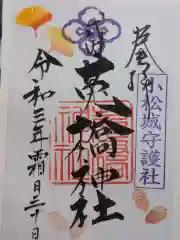 小松城守護社
莵橋神社
令和三年霜月二十日